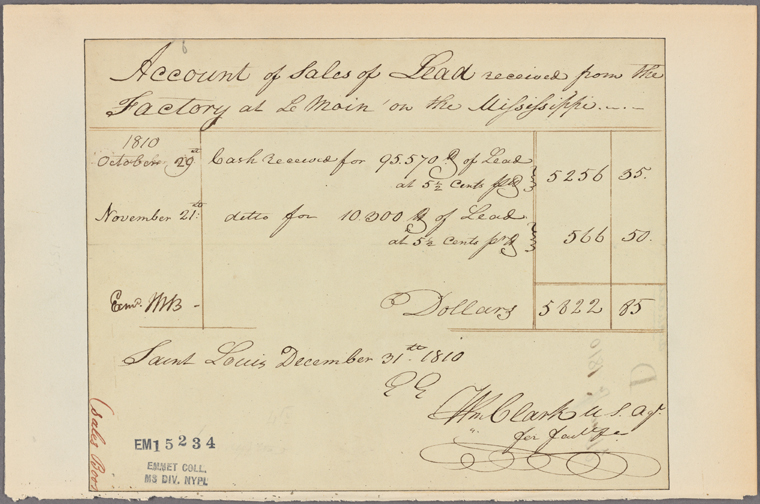 Account of Sales of Lead received from the
Factory at Le Moin on the Mississippi
1810
October 29th Cash received for 95.570 lb of Lead
at 5½ Cents pr lb } 5256 35.
November 21st ditto for 10.300 lb of Lead
at 5½ Cents pr lb } 566 50.
Exmd. Dollars 5822 85
Saint Louis December 31st 1810
E E
Wm Clark U.S. Agt.
for
(Sales
EM15234
EMMET COLL.
MS DIV. NYPL